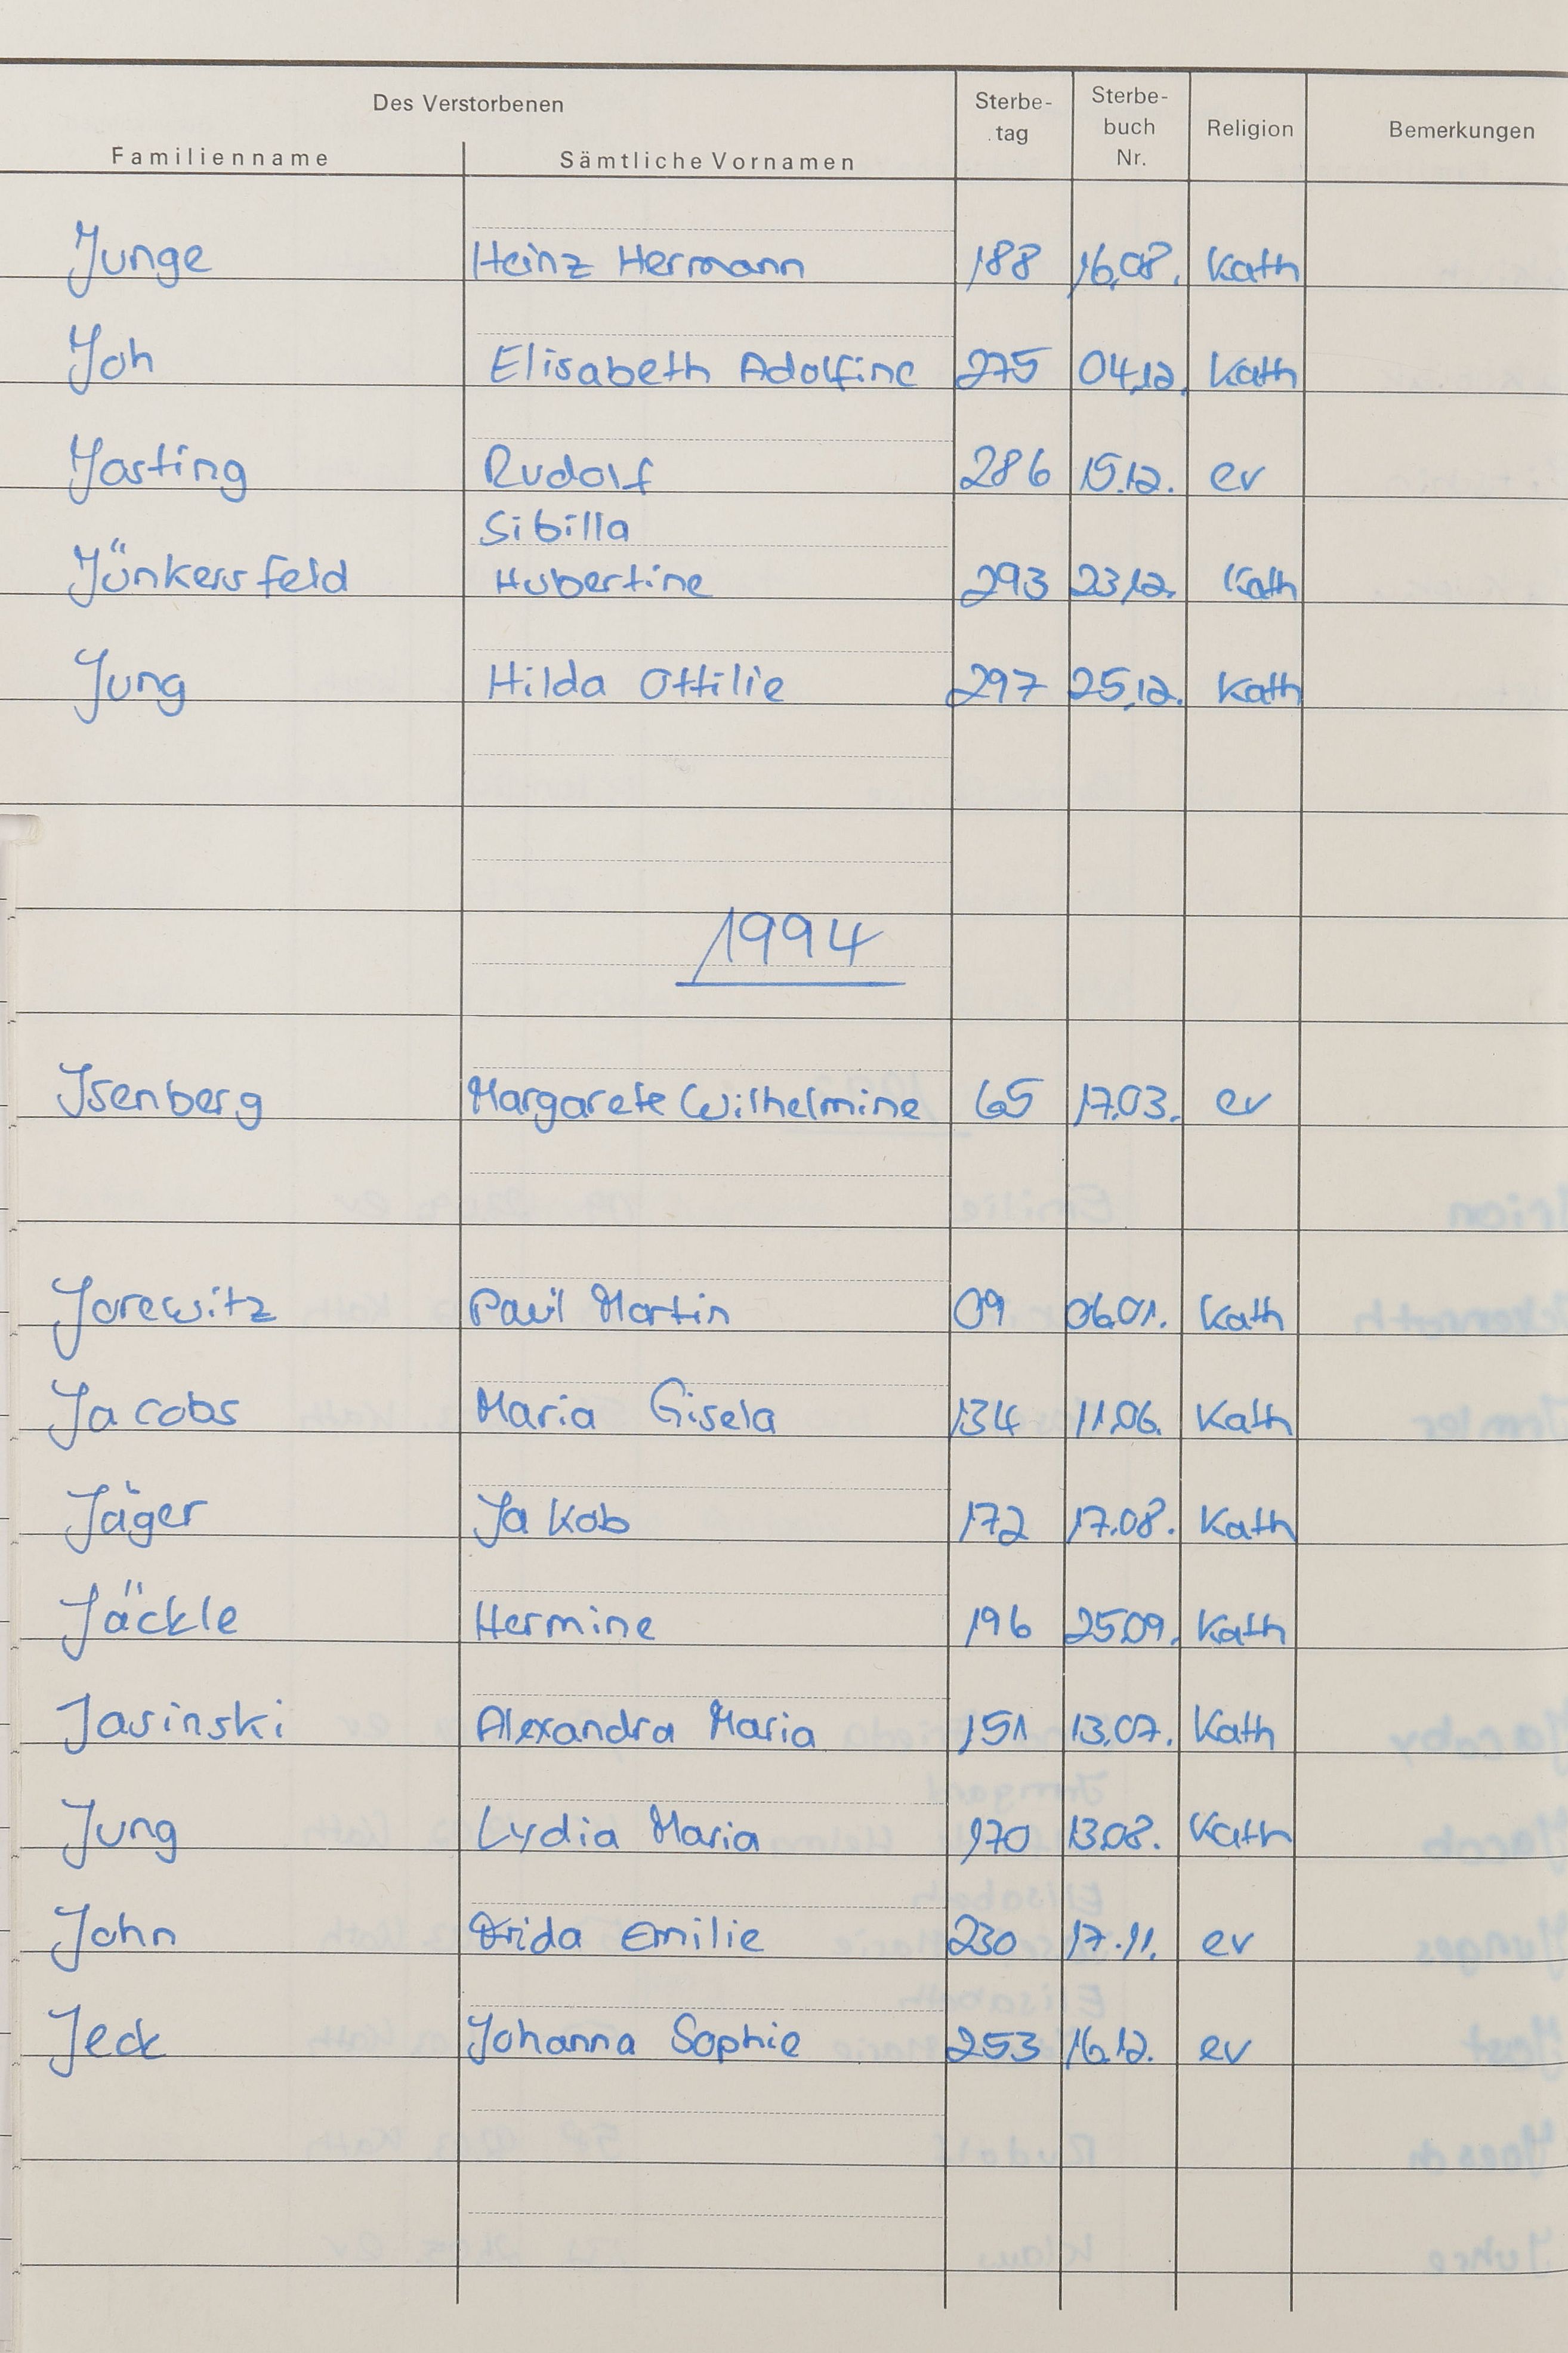 Des Verstorbenen
Familienname Sämtliche Vornamen Sterbe-tag Sterbe-buch Nr. Religion Bemerkungen
Junge Heinz Hermann 188 16.08. Kath
Joh Elisabeth Adolfine 275 04.12. Kath
Josting Rudolf 286 15.12. ev
Sibilla
Jünkersfeld Hubertine 293 23.12. Kath
Jung Hilda Ottilie 297 25.12. Kath
1994
Isenberg Margarete Wilhelmine 65 17.03. ev
Jorewitz Paul Martin 09 06.01. Kath
Jacobs Maria Gisela 134 11.06. Kath
Jäger Jakob 172 17.08. Kath
Jäckle Hermine 196 25.09. Kath
Jasinski Alexandra Maria 151 13.07. Kath
Jung Lydia Maria 170 13.08. Kath
John Emilie 230 17.11. ev
Jeck Johanna Sophie 253 16.12. ev